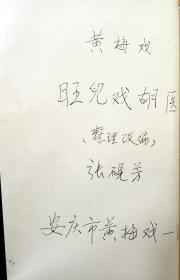 黄梅戏
旺兒戏胡医
（整理改编）
张砚芳
安庆市黄梅戏一